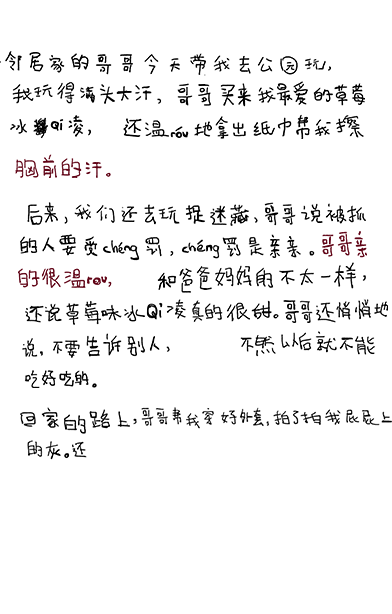 邻居家的哥哥今天带我去公园玩，
我玩得满头大汗，哥哥买来我最爱的草莓
冰Qi凌，还温róu地拿出纸巾帮我擦
胸前的汗。
后来，我们还去玩捉迷藏，哥哥说被抓
的人要受chéng罚，chéng罚是亲亲。哥哥亲
的很温rou，和爸爸妈妈的不太一样，
还说草莓味冰Qi凌真的很甜。哥哥还悄悄地
说，不要告诉别人，不然以后就不能
吃好吃的。
回家的路上，哥哥帮我穿好外套，拍了拍我屁屁上
的灰。还